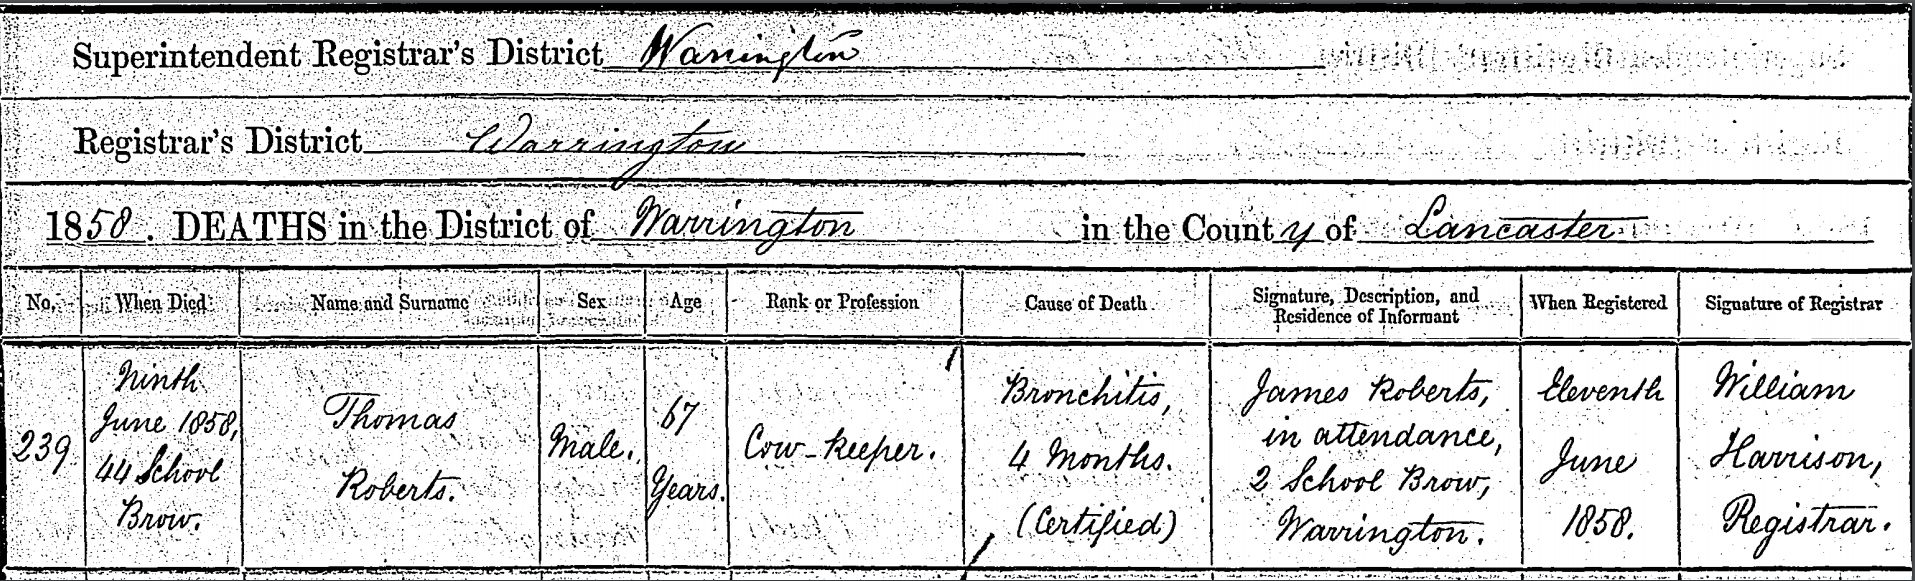 Superintendent Registrar's District Warrington
Registrar's District Warrington
1858. DEATHS in the District of Warrington in the County of Lancaster
No. When Died Name and Surname Sex Age Rank or Profession Cause of Death Signature, Description, and Residence of Informant When Registered Signature of Registrar
239
Ninth
June 1858,
44 School
Brow.
Thomas
Roberts.
Male.
67
Years.
Cow-keeper.
Bronchitis,
4 Months.
(Certified)
James Roberts,
in attendance,
2 School Brow,
Warrington.
Eleventh
June
1858.
William
Harrison,
Registrar.